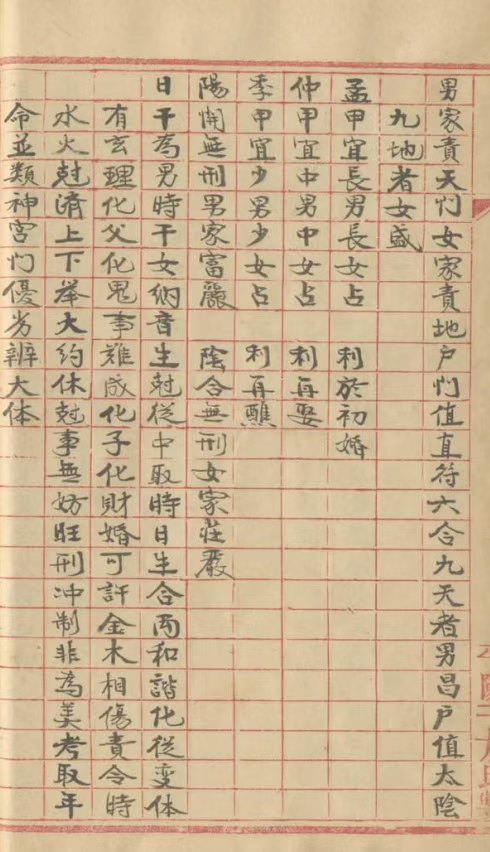 男家責天门女家責地户门值直符六合九天者男昌户值太陰
九地者女盛
孟甲宜長男長女占 利於初婚
仲甲宜中男中女占 利再娶
季甲宜少男少女占 利再醮
陽開無刑男家富麗 陰合無刑女家荘嚴
日干為男時干女納音生尅従中取時日生合两和諧化従变体
有玄理化父化鬼事难成化子化財婚可許金木相傷責令時
水火尅濟上下举大约休尅事無妨旺刑冲制非為美考取年
命並類神宫门優劣辨大体